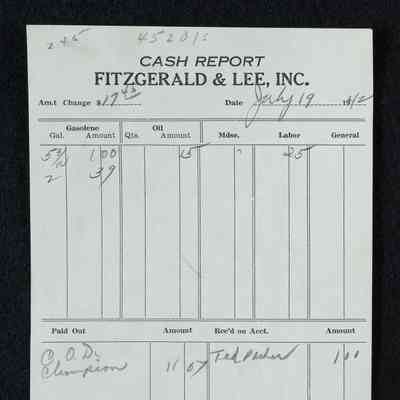 245 45201s
CASH REPORT
FITZGERALD & LEE, INC.
Amt Change $17 45 Date July 19 1942
Gasolene Oil
Gal. Amount Qts. Amount Mdse. Labor General
1 00 15 25
2 39
Paid Out Amount Rec'd on Acct. Amount
C.O.D. Ted 1 00
Champion 11 07